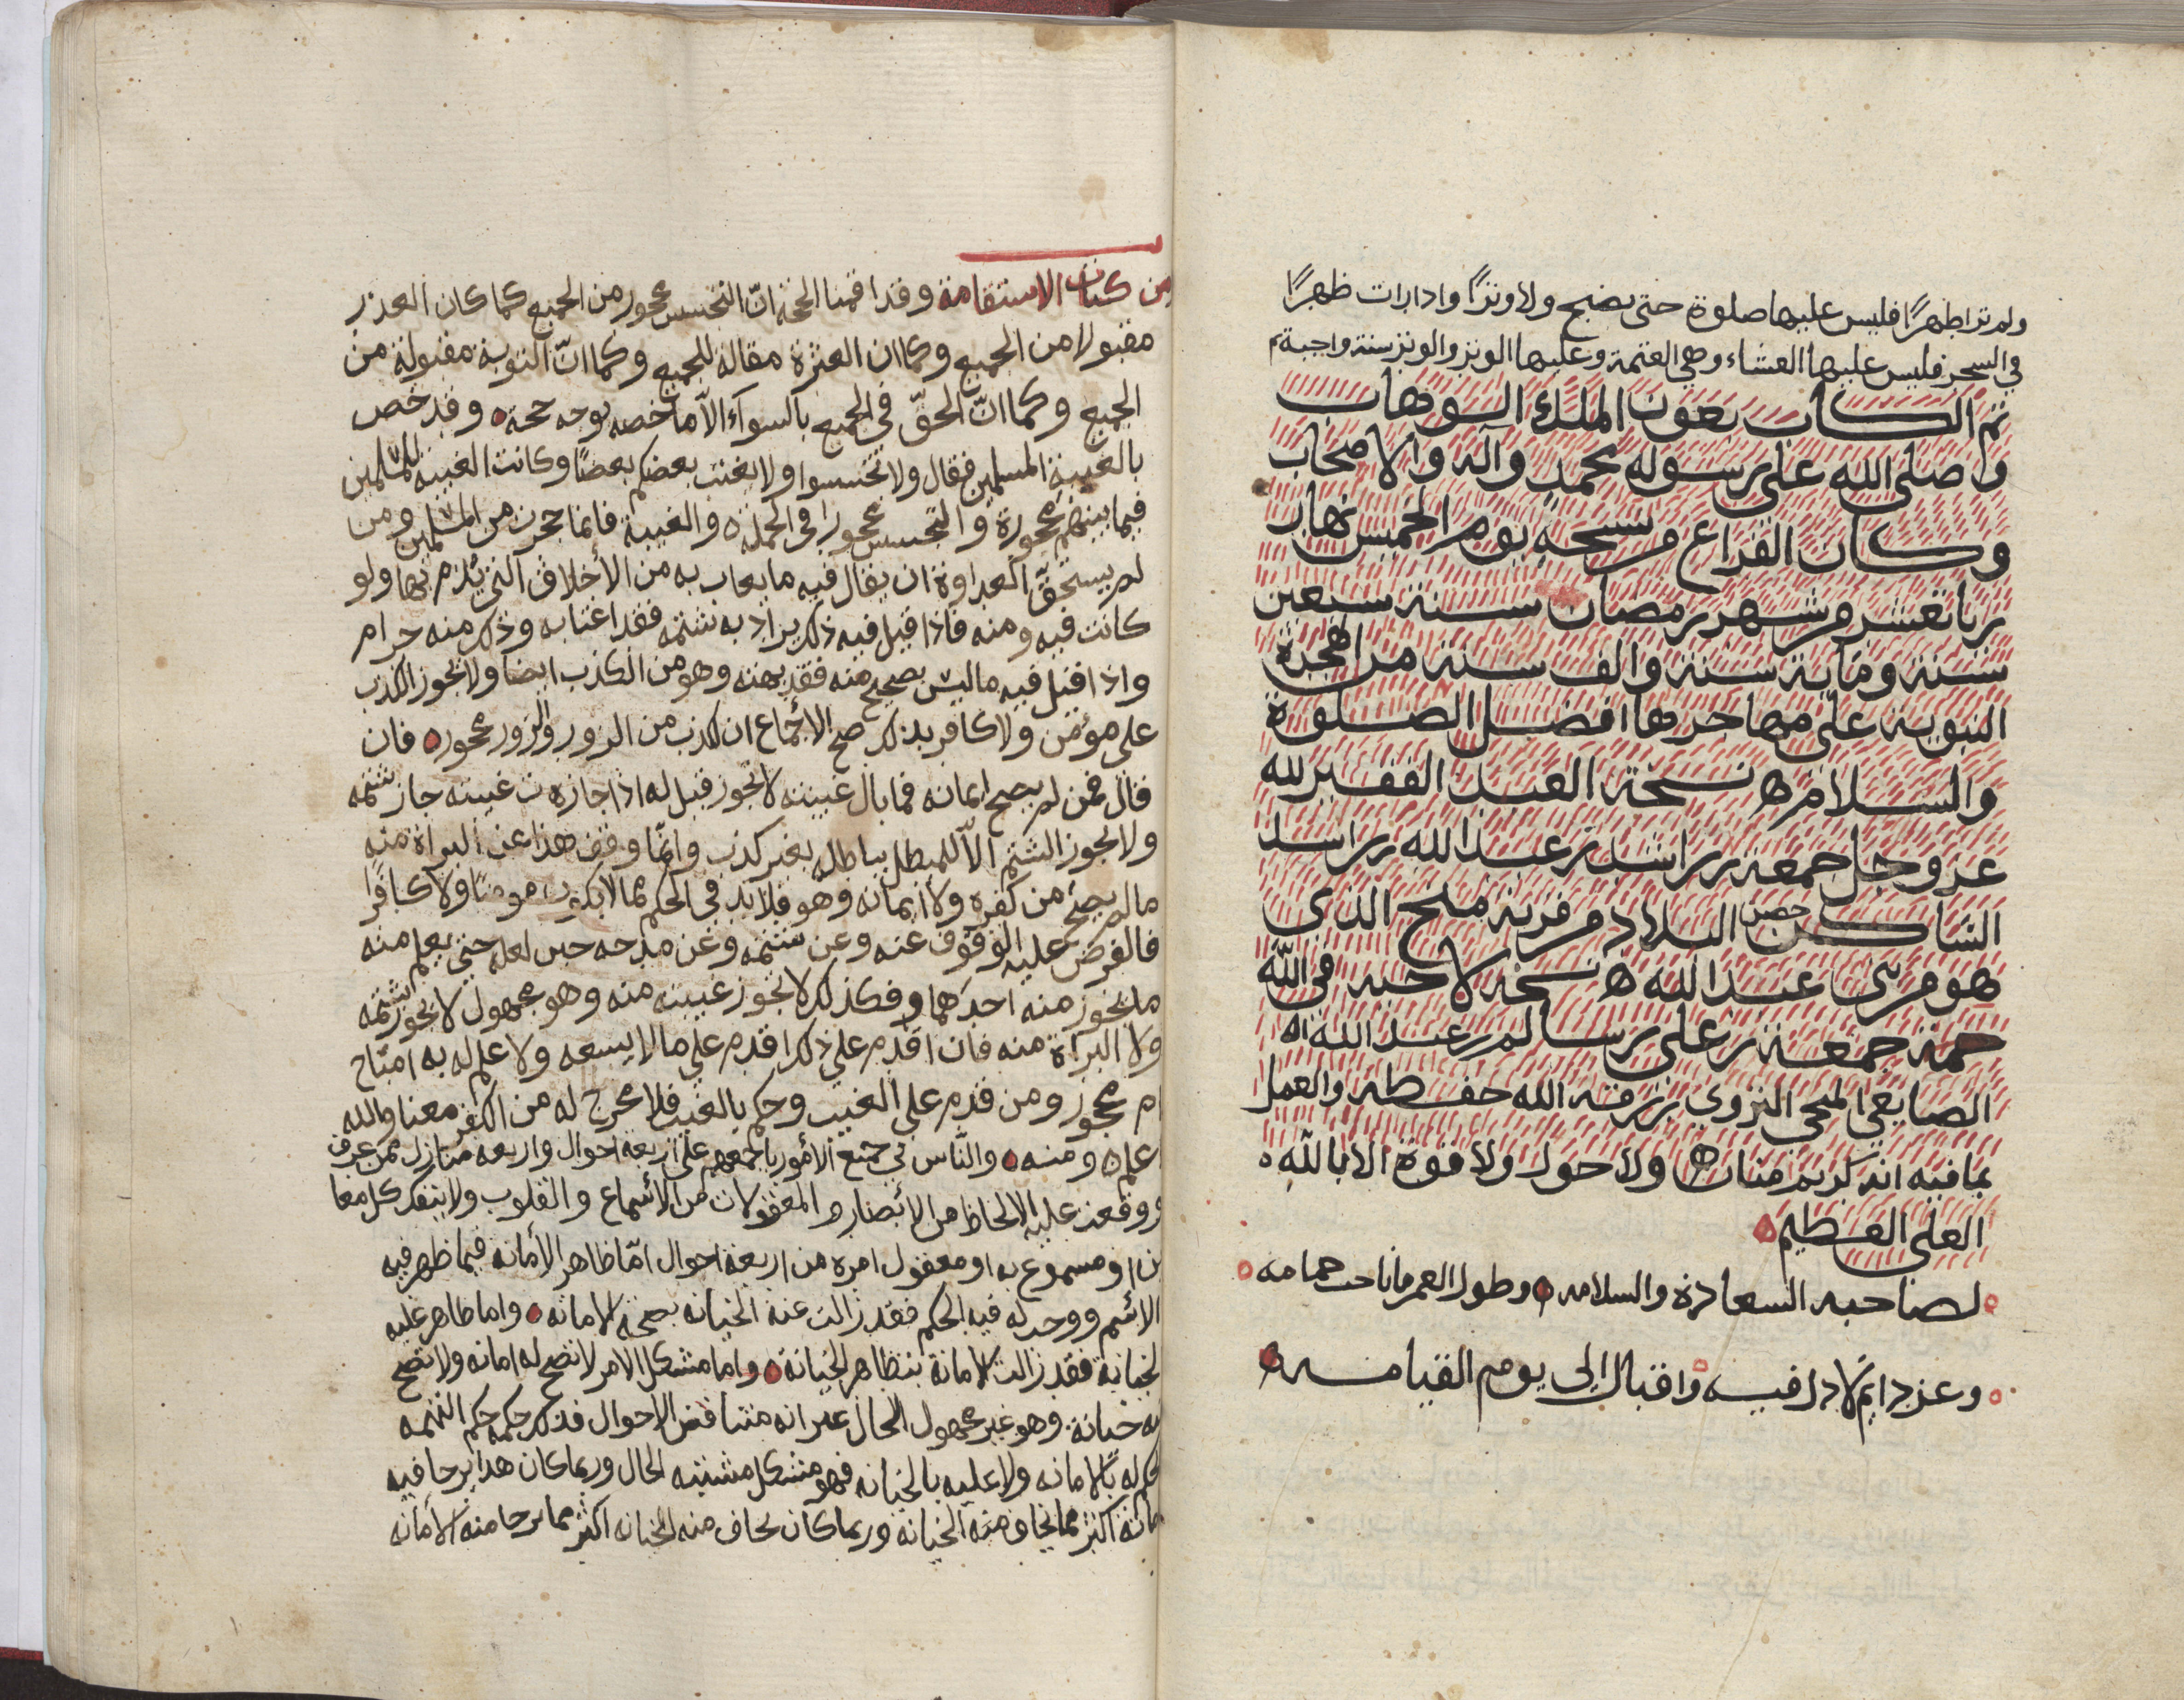 ولم تر اطهرًا فليس عليها صلوة حتى يصبح ولا وترًا واذا رات طهرًا
في السحر فليس عليها العشاء وهي العتمة وعليها الوتر والوتر سنة واجبة تم
تم الكتاب بعون الملك الوهاب
وصلى الله على رسوله محمد وآله والاصحاب
وكان الفراغ من نسخه يوم الخميس نهار
رباتعشر من شهر رمضان سنة سبعين
سنة ومائة سنة والف سنة من الهجرة
النبوية على مهاجرها افضل الصلوة
والسلام ه نسخة العبد الفقير لله
عز وجل جمعه بن راشد بن عبدالله بن راشد
الساكن حصن البلاد من قرية منح الذي
هو من بني عبد الله ه نسخه لاخيه في الله
جمعة بن علي بن سالم بن عبد الله
الصايغي المنحي النزوي رزقه الله حفظه والعمل
بما فيه انه كريم منان ه ولا حول ولا قوة الا بالله
العلي العظيم
لصاحبه السعادة والسلامه وطول العمر ما ناحت حمامه
وعز دايم لا ذل فيه واقبال الى يوم القيامه
من كتاب الاستقامة وقد اقمنا الحجة انّ التجسس محجور من الجميع كما كان العذر
مقبولا من الجميع وكما ان العثرة مقالة للجميع وكما انّ التوبة مقبولة من
الجميع وكما انّ الحقّ في الجميع بالسوآء الاّ ما خصه بوجه حجة وقد خص
بالغيبة المسلمين فقال ولا تجسسوا ولا يغتب بعضكم بعضًا وكانت الغيبة للمسلمين
فيما بينهم محجورة والتجسس محجورا في الجملة والغيبة فانما حجرت من المسلمين ومن
لم يستحقّ العداوة ان يقال فيه ما يعاب به من الأخلاق التي يذم بها ولو
كانت فيه ومنه فاذا قيل فيه ذلك يراد به شتمه فقد اغتابه وذلك منه حرام
واذا قيل فيه ما ليس بصحيح منه فقد بهته وهو من الكذب ايضا ولا يجوز الكذب
على مؤمن ولا كافر بذلك صح الاجماع ان الكذب من الزور والزور محجور فان
قال فمن لم يصح ايمانه فما بال غيبته لا تجوز قيل له اذا جازت غيبته جاز شتمه
ولا يجوز الشتم الاّ للمبطل بباطله بغير كذب وانّما وقف هذا عن البراة منه
ما لم يصح من كفره ولا ايمانه وهو فلا بد في الحكم مما لا يكون مومنًا ولا كافرًا
فالفرض عليه الوقوف عنه وعن شتمه وعن مدحه حين لعله حتى يعلم منه
ما يجوز منه احدهما فكذلك لا تجوز غيبته منه وهو مجهول لا يجوز شتمه
ولا البراة منه فان اقدم على ذلك اقدم على ما لا يسعه ولا علم له به امباح
ام محجور ومن قدم على الغيب وحكم بالغيب فلا مخرج له من الكفر معنا والله
اعلم ومنه والنّاس في جميع الأمور باجمعهم على اربعة احوال واربعة منازل ممن عرف
ووقعت عليه الالحاظ من الأبصار والمعقولات من الأسماع والقلوب ولا ينفك كل معا
ين او مسموع به او معقول امره من اربعة احوال امّا ظاهر الأمانة فيما ظهر فيه
الاسم ووجد له فيه الحكم فقد زالت عنه الخيانه بصحة الامانه واما ظاهر عليه
الخيانة فقد زالت الامانة بتظاهر الخيانة واما مشكل الامر لا تصح له امانه ولا تصح
له خيانة وهو غير مجهول الحال غير انه متناقض الاحوال فذلك حكمه حكم التهمه
لا يحكم له بالامانه ولا عليه بالخيانه فهو مشكل مشتبه الحال وربما كان هذا يرجا فيه
الامانة اكثر مما يخاف منه الخيانه وربما كان يخاف منه الخيانه اكثر مما يرجا منه الامانه